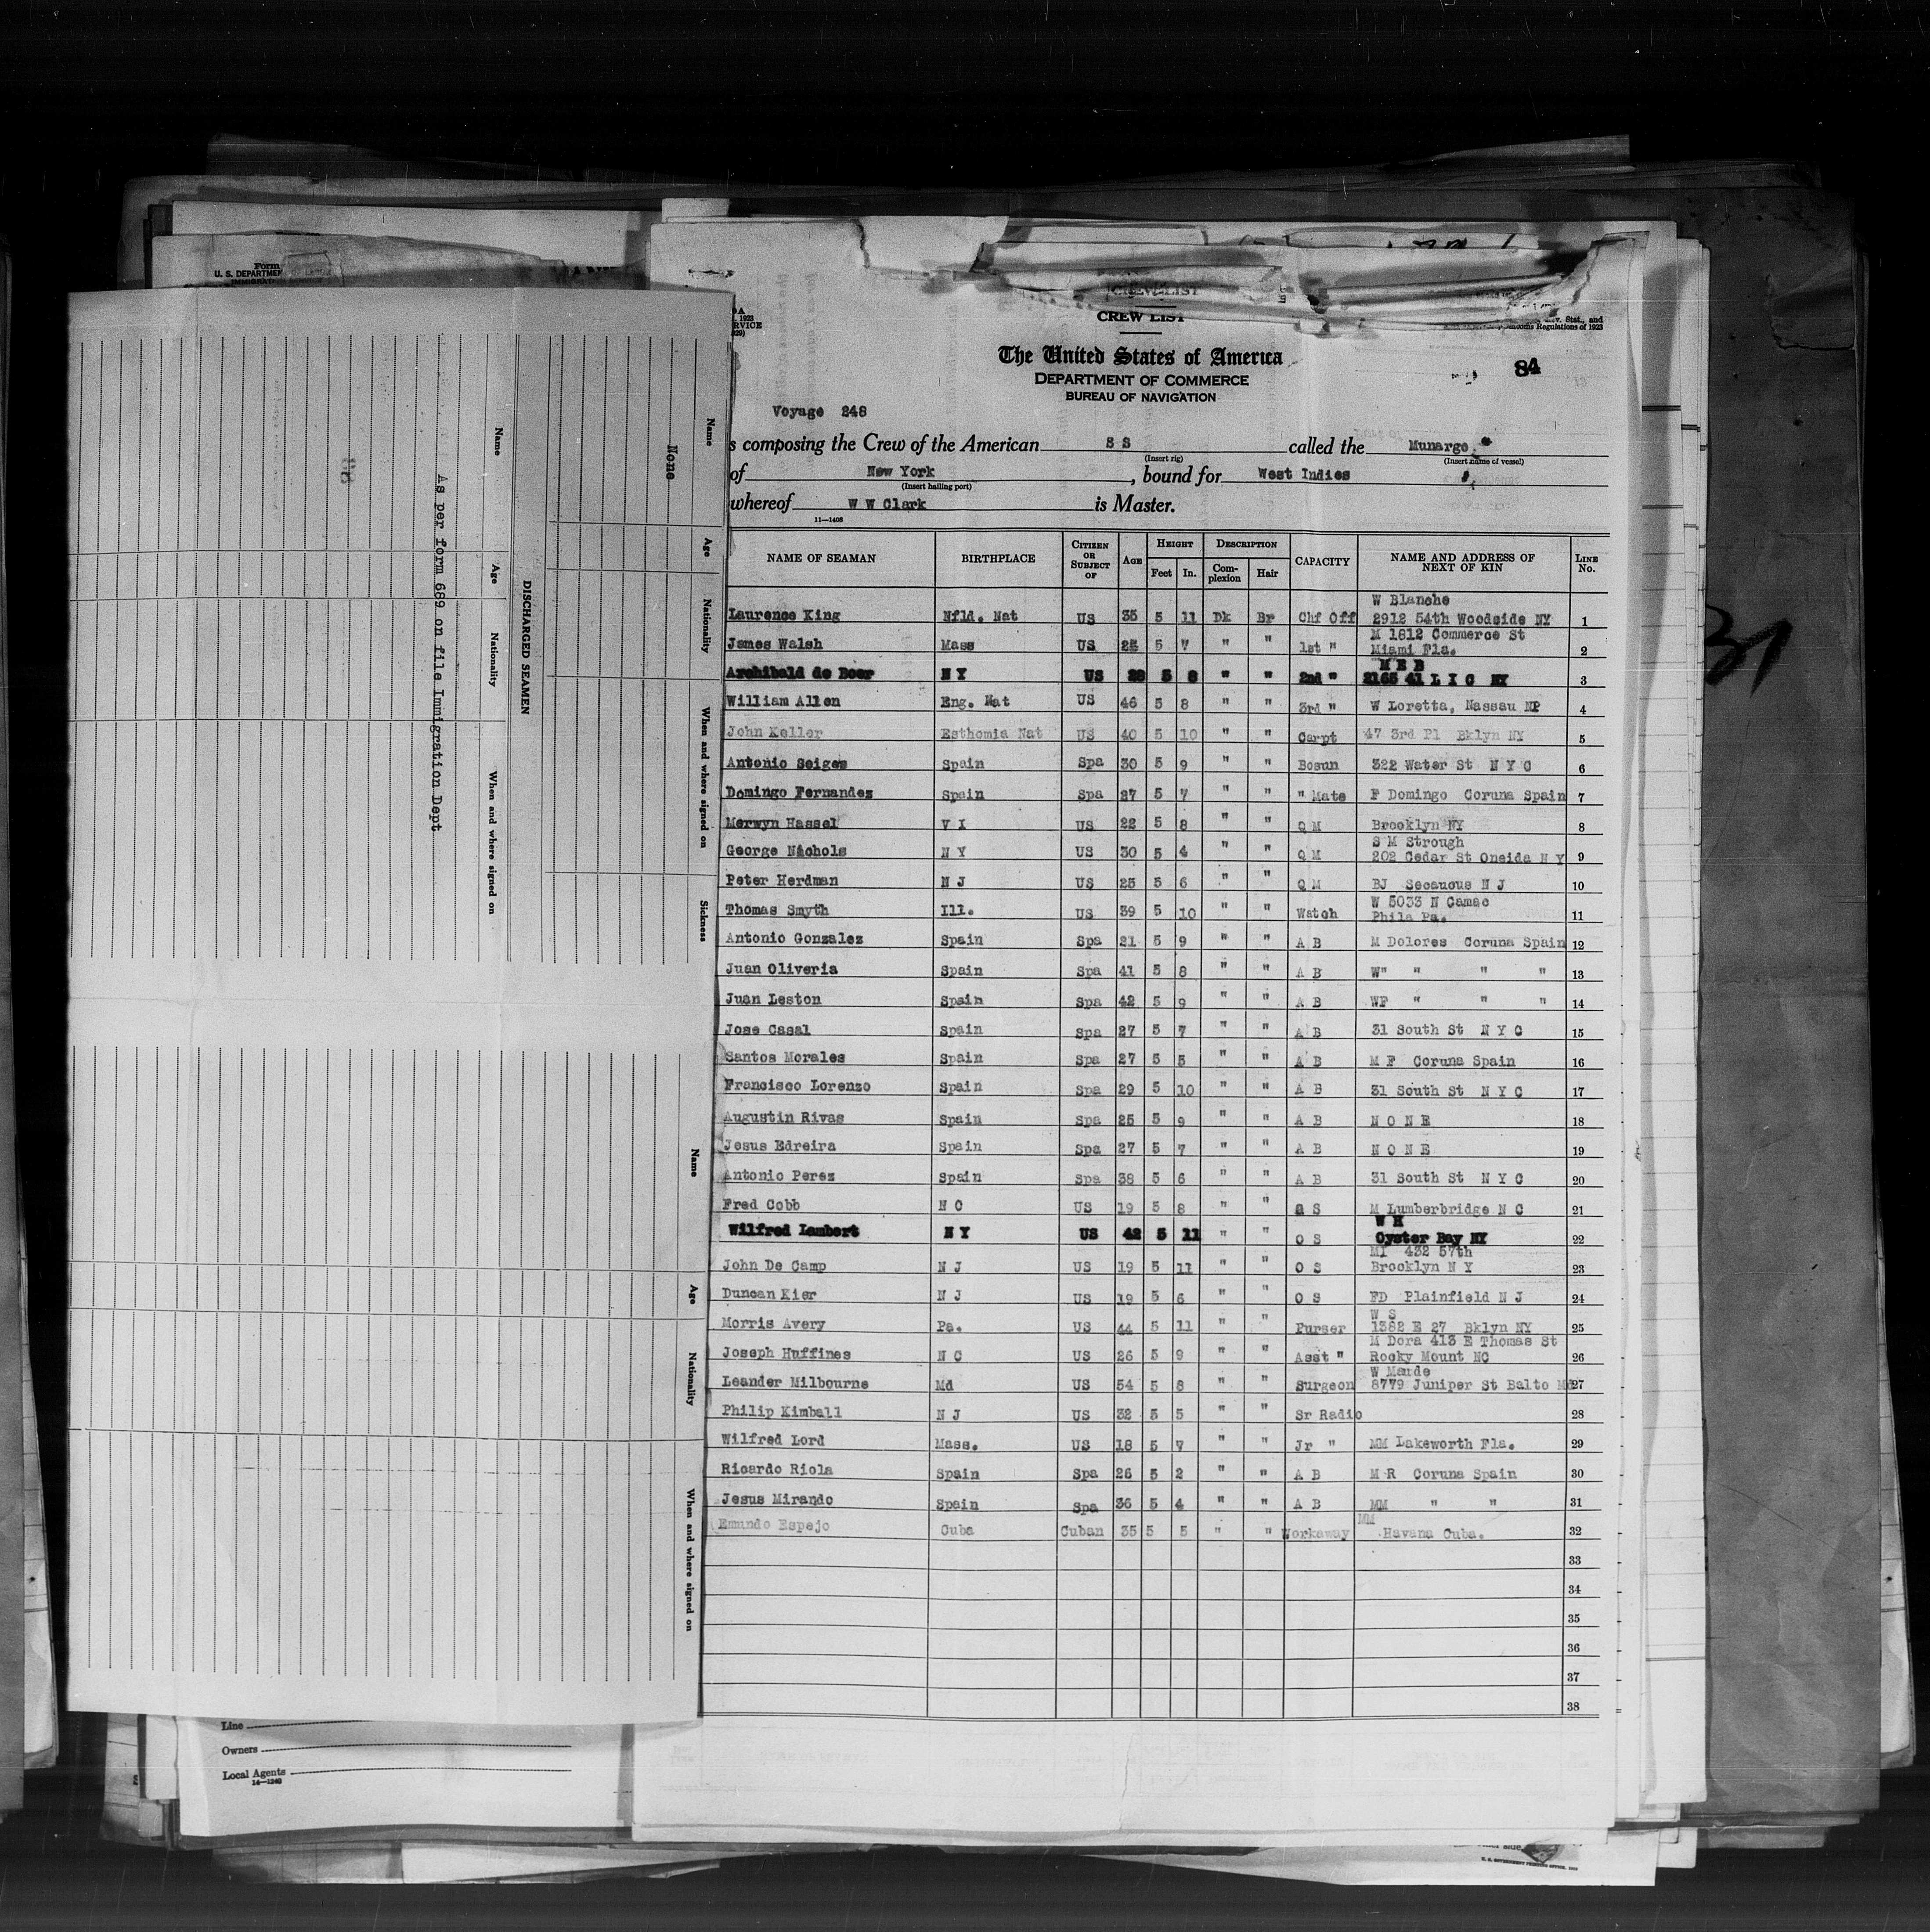 Form
U. S. DEPARTMEN
CREW LIST
CREW LIST
The United States of America
DEPARTMENT OF COMMERCE
BUREAU OF NAVIGATION
84
Voyage 248
s composing the Crew of the American S S called the Munargo
(Insert rig) (Insert name of vessel)
of New York, bound for West Indies
(Insert hailing port)
whereof W W Clark is Master.
11—1408
NAME OF SEAMAN BIRTHPLACE CITIZEN OR SUBJECT OF AGE HEIGHT Feet In. DESCRIPTION Complexion Hair CAPACITY NAME AND ADDRESS OF NEXT OF KIN LINE No.
W Blanche
Laurence King Nfld. Nat US 35 5 11 Dk Br Chf Off 2912 54th Woodside NY 1
M 1812 Commerce St
James Walsh Mass US 5 7 " " 1st " Miami Fla. 2
M E B
Archibald de Boer N Y US 28 5 8 " " 2nd " 2165 41 L I C NY 3
William Allen Eng. Nat US 46 5 8 " " 3rd " W Loretta, Nassau NP 4
John Keller Esthomia Nat US 40 5 10 " " Carpt 47 3rd Pl Bklyn NY 5
Antonio Seiges Spain Spa 30 5 9 " " Bosun 322 Water St N Y C 6
Domingo Fernandez Spain Spa 27 5 7 " " " Mate F Domingo Coruna Spain 7
Merwyn Hassel V I US 22 5 8 " " Q M Brooklyn NY 8
S M Strough
George Nichols N Y US 30 5 4 " " Q M 202 Cedar St Oneida N Y 9
Peter Herdman N J US 25 5 6 " " Q M BJ Secaucus N J 10
W 5033 N Camac
Thomas Smyth Ill. US 39 5 10 " " Watch Phila Pa. 11
Antonio Gonzalez Spain Spa 21 5 9 " " A B M Dolores Coruna Spain 12
Juan Oliveria Spain Spa 41 5 8 " " A B W" " " " 13
Juan Leston Spain Spa 42 5 9 " " A B WF " " " 14
Jose Casal Spain Spa 27 5 7 " " A B 31 South St N Y C 15
Santos Morales Spain Spa 27 5 5 " " A B M F Coruna Spain 16
Francisco Lorenzo Spain Spa 29 5 10 " " A B 31 South St N Y C 17
Augustin Rivas Spain Spa 25 5 9 " " A B N O N E 18
Jesus Edreira Spain Spa 27 5 7 " " A B N O N E 19
Antonio Perez Spain Spa 38 5 6 " " A B 31 South St N Y C 20
Fred Cobb N C US 19 5 8 " " O S M Lumberbridge N C 21
W H
Wilfred Lambert N Y US 42 5 11 " " O S Oyster Bay NY 22
MI 432 57th
John De Camp N J US 19 5 11 " " O S Brooklyn N Y 23
Duncan Kier N J US 19 5 6 " " O S FD Plainfield N J 24
W S
Morris Avery Pa. US 44 5 11 " " Purser 1382 E 27 Bklyn NY 25
M Dora 413 E Thomas St
Joseph Huffines N C US 26 5 9 " " Asst " Rocky Mount NC 26
W Maude
Leander Milbourne Md US 54 5 8 " " Surgeon 8779 Juniper St Balto Md 27
Philip Kimball N J US 32 5 5 " " Sr Radio 28
Wilfred Lord Mass. US 18 5 7 " " Jr " MM Lakeworth Fla. 29
Ricardo Riola Spain Spa 26 5 2 " " A B M R Coruna Spain 30
Jesus Mirando Spain Spa 36 5 4 " " A B MM " " 31
MM
Emundo Espejo Cuba Cuban 35 5 5 " " Workaway Havana Cuba. 32
33
34
35
36
37
38
Name Age Nationality When and where signed on Sickness
None
DISCHARGED SEAMEN
Name Age Nationality When and where signed on
As per form 689 on file Immigration Dept
Name Age Nationality When and where signed on
Line
Owners
Local Agents
14—1240
31